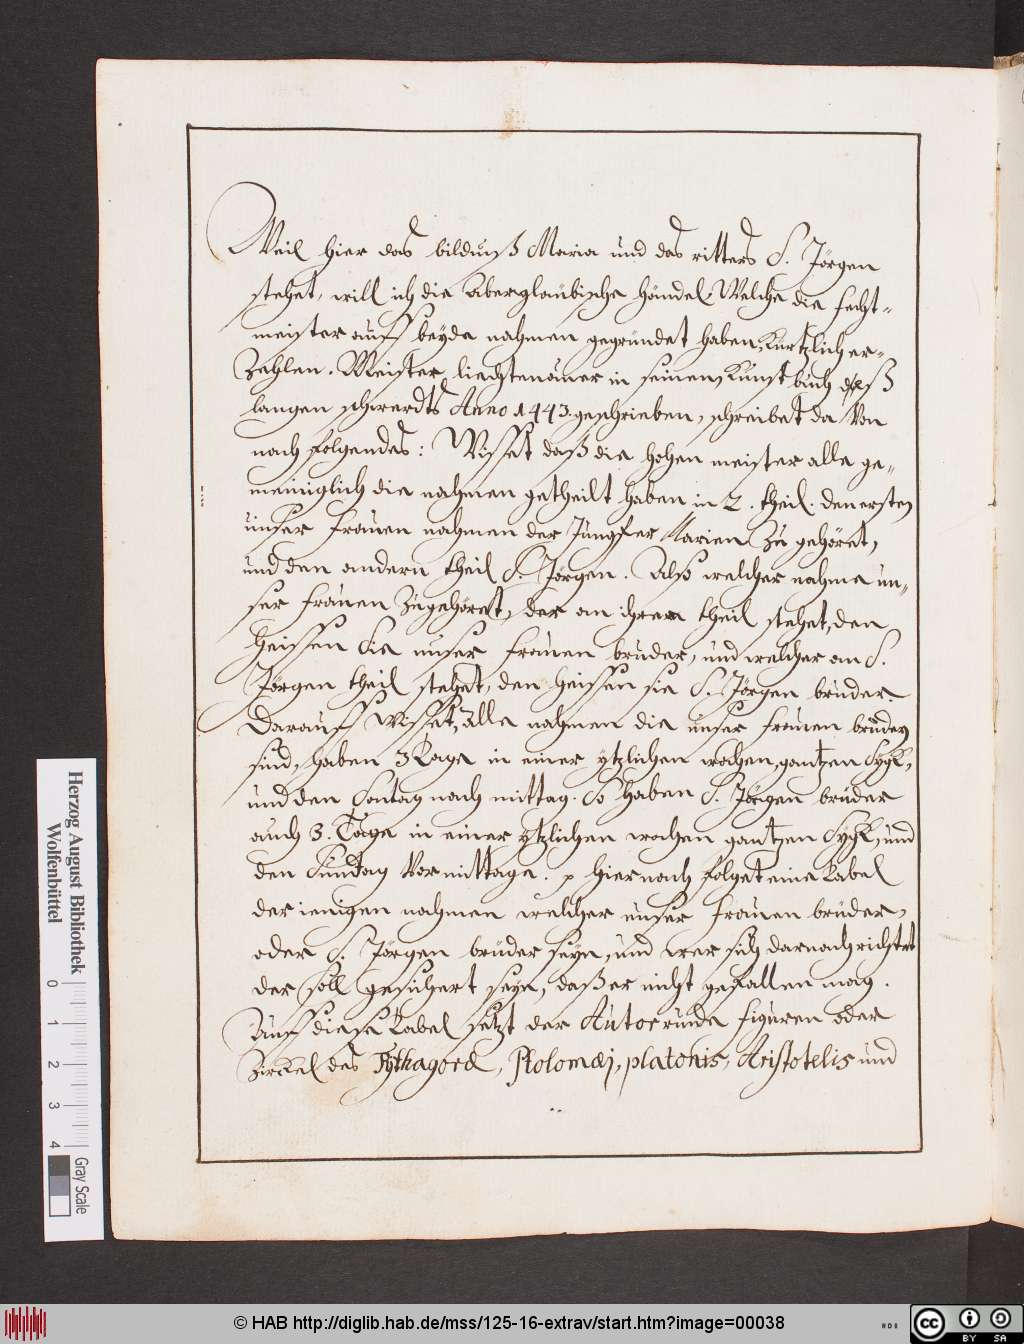 Weil hier das bildnuß Maria und das ritters S. Jörgen
stehet, will ich die Abergläubische händel, Welche die fecht=
meister auff beyde nahmen gegründet haben, kürtzlich er=
Zehlen. Meister liechtenawer in seinem Kunst buch deß
langen schwerdts Anno 1443. geschrieben, schreibet da Von
nach folgendes: Wisset daß die hohen meister alle ge=
meiniglich die nahmen getheilt haben in 2. theil: den ersten
unser frauen nahmen der Jungfer Marien Zu gehöret,
und den andern theil S. Jörgen. Alß welcher nahme un=
ser frauen Zugehöret, der an ihrem theil stehet, den
heissen Sie unser frauen bruder, und welcher an S.
Jörgen theil stehet, den heissen sie S. Jörgen bruder.
Darauff Wisset, alle nahmen die unser frauen brüder
sind, haben 3 Tage in einer ytzlichen wochen, gantzen Sygk,
und den Sontag nach mittag. So haben S. Jörgen brüder
auch 3. Tage in einer ytzlichen wochen gantzen Sygk, und
den Sundag Vor mittage. hiernach folget eine Tabel
der ienigen nahmen welcher unser frauen brüder,
oder S. Jörgen brüder seyn, und wer sich darnach richtet
der soll gesichert seyn, daß er nicht gefallen mag.
Auff diese Tabel setzt der Autor runde figuren oder
Zirckel des Pythagoræ, Ptolomæj, platonis, Aristotelis und
Herzog August Bibliothek
Wolfenbüttel
0 1 2 3 4
Gray Scale
© HAB http://diglib.hab.de/mss/125-16-extrav/start.htm?image=00038
cc BY SA